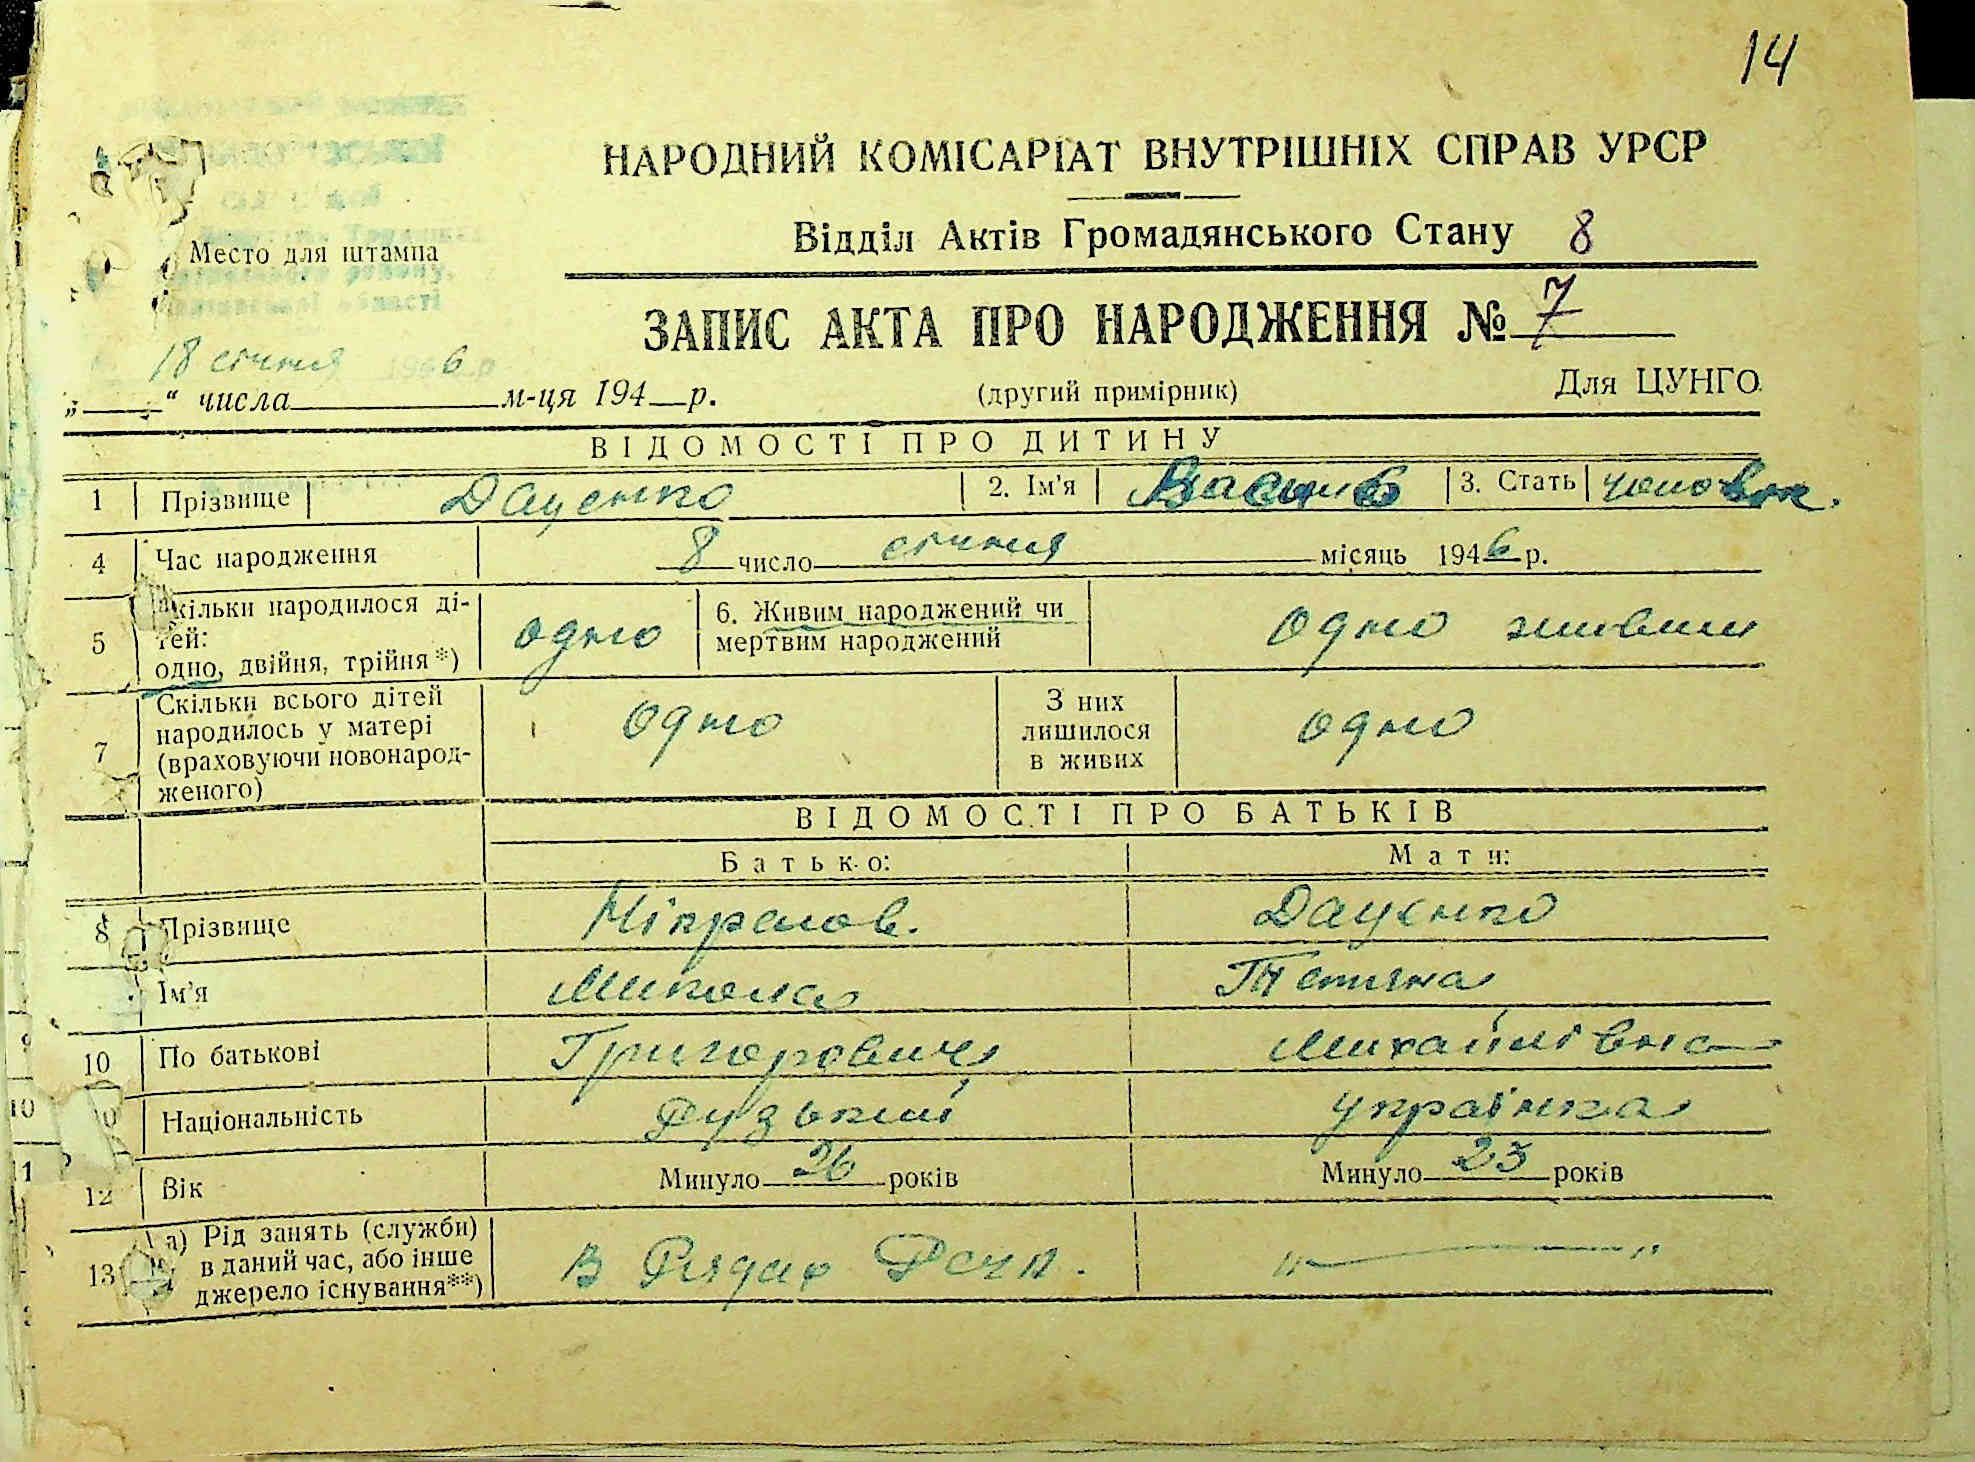 14
НАРОДНИЙ КОМІСАРІАТ ВНУТРІШНІХ СПРАВ УРСР
Відділ Актів Громадянського Стану 8
Место для штампа
області
ЗАПИС АКТА ПРО НАРОДЖЕННЯ № 7
18 січня 1946 р
„ “ числа м-ця 194 р.
(другий примірник)
Для ЦУНГО
ВІДОМОСТІ ПРО ДИТИНУ
1 Прізвище Даценко 2. Ім'я 3. Стать чоловік.
4 Час народження 8 число січня місяць 1946 р.
5 Скільки народилося ді-
тей:
одно, двійня, трійня*) одно
6. Живим народжений чи
мертвим народжений одно живим
7 Скільки всього дітей
народилось у матері
(враховуючи новонарод-
женого) одно
З них
лишилося
в живих одно
ВІДОМОСТІ ПРО БАТЬКІВ
Батько: Мати:
8 Прізвище Даценко
Ім'я Микола Тетяна
10 По батькові Григорович Михайлівна
Національність Рузький українка
12 Вік Минуло 26 років Минуло 23 років
13 а) Рід занять (служби)
в даний час, або інше
джерело існування**) В Рядах „ — „